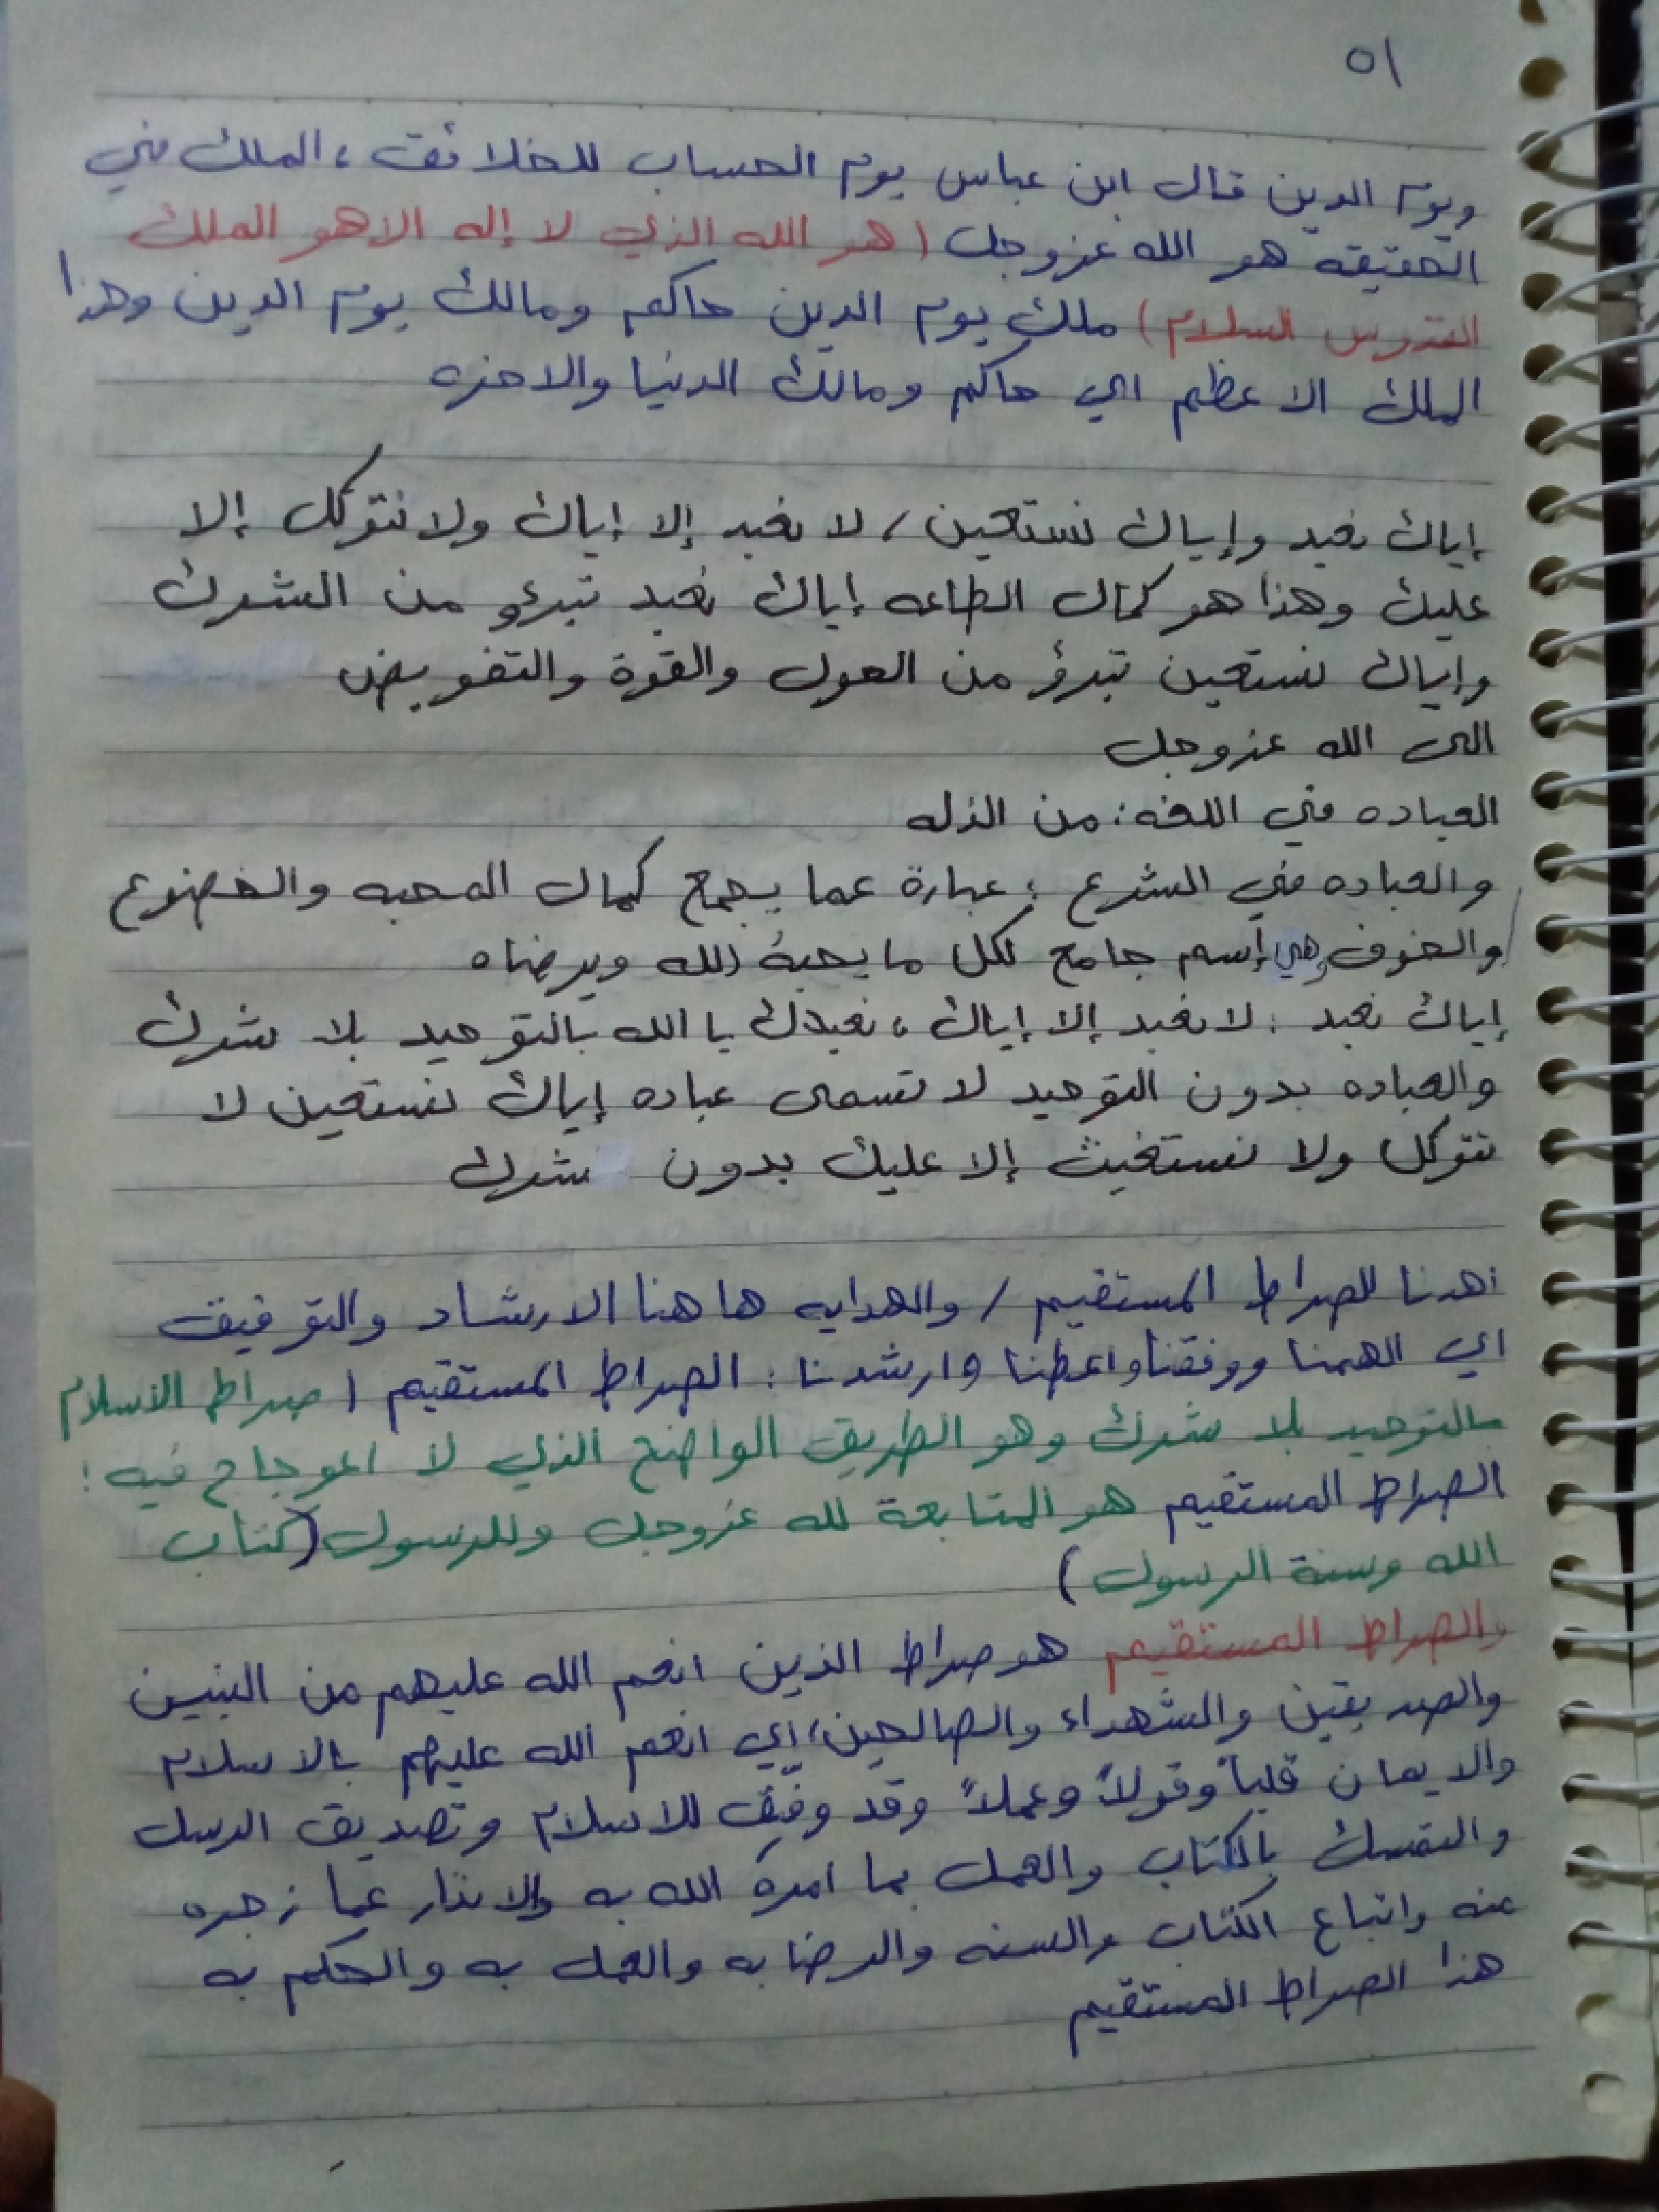 ٥١
ويوم الدين قال ابن عباس يوم الحساب للخلائق ، الملك في
الحقيقه هو الله عزوجل (هو الله الذي لا إله الا هو الملك
القدوس السلام) ملك يوم الدين حاكم ومالك يوم الدين وهذا
الملك الاعظم اي حاكم ومالك الدنيا والاخره
إياك نعبد وإياك نستعين / لا نعبد إلا إياك ولا نتوكل إلا
عليك وهذا هو كمال الطاعه إياك نعبد تبرؤ من الشرك
وإياك نستعين تبرؤ من الحول والقوة والتفويض
الى الله عزوجل
العباده في اللغه : من الذله
والعباده في الشرع : عبارة عما يجمع كمال المحبه والخضوع
والخوف وهي إسم جامع لكل ما يحبهُ الله ويرضاه
إياك نعبد : لا نعبد إلا إياك ، نعبدك يا الله بالتوحيد بلا شرك
والعباده بدون التوحيد لا تسمى عباده إياك نستعين لا
نتوكل ولا نستغيث إلا عليك بدون شرك
اهدنا الصراط المستقيم / والهدايه هاهنا الارشاد والتوفيق
اي الهمنا ووفقنا واعطنا وارشدنا : الصراط المستقيم ( صراط الاسلام
بالتوحيد بلا شرك وهو الطريق الواضح الذي لا اعوجاج فيه :
الصراط المستقيم هو المتابعة لله عزوجل وللرسول (كتاب
الله وسنة الرسول)
والصراط المستقيم هو صراط الذين انعم الله عليهم من النبيين
والصديقين والشهداء والصالحين ، اي انعم الله عليهم بالاسلام
والايمان قلباً وقولاً وعملاً وقد وفّق للاسلام وتصديق الرسل
والتمسك بالكتاب والعمل بما امره الله به والانذار عما زجره
عنه واتباع الكتاب والسنه والرضا به والعمل به والحكم به
هذا الصراط المستقيم